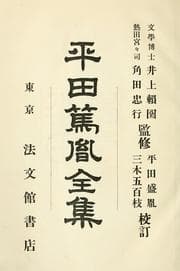 文學博士 井上賴圀
熱田宮々司 角田忠行
監修
平田盛胤
三木五百枝
校訂
平田篤胤全集
東京 法文館書店